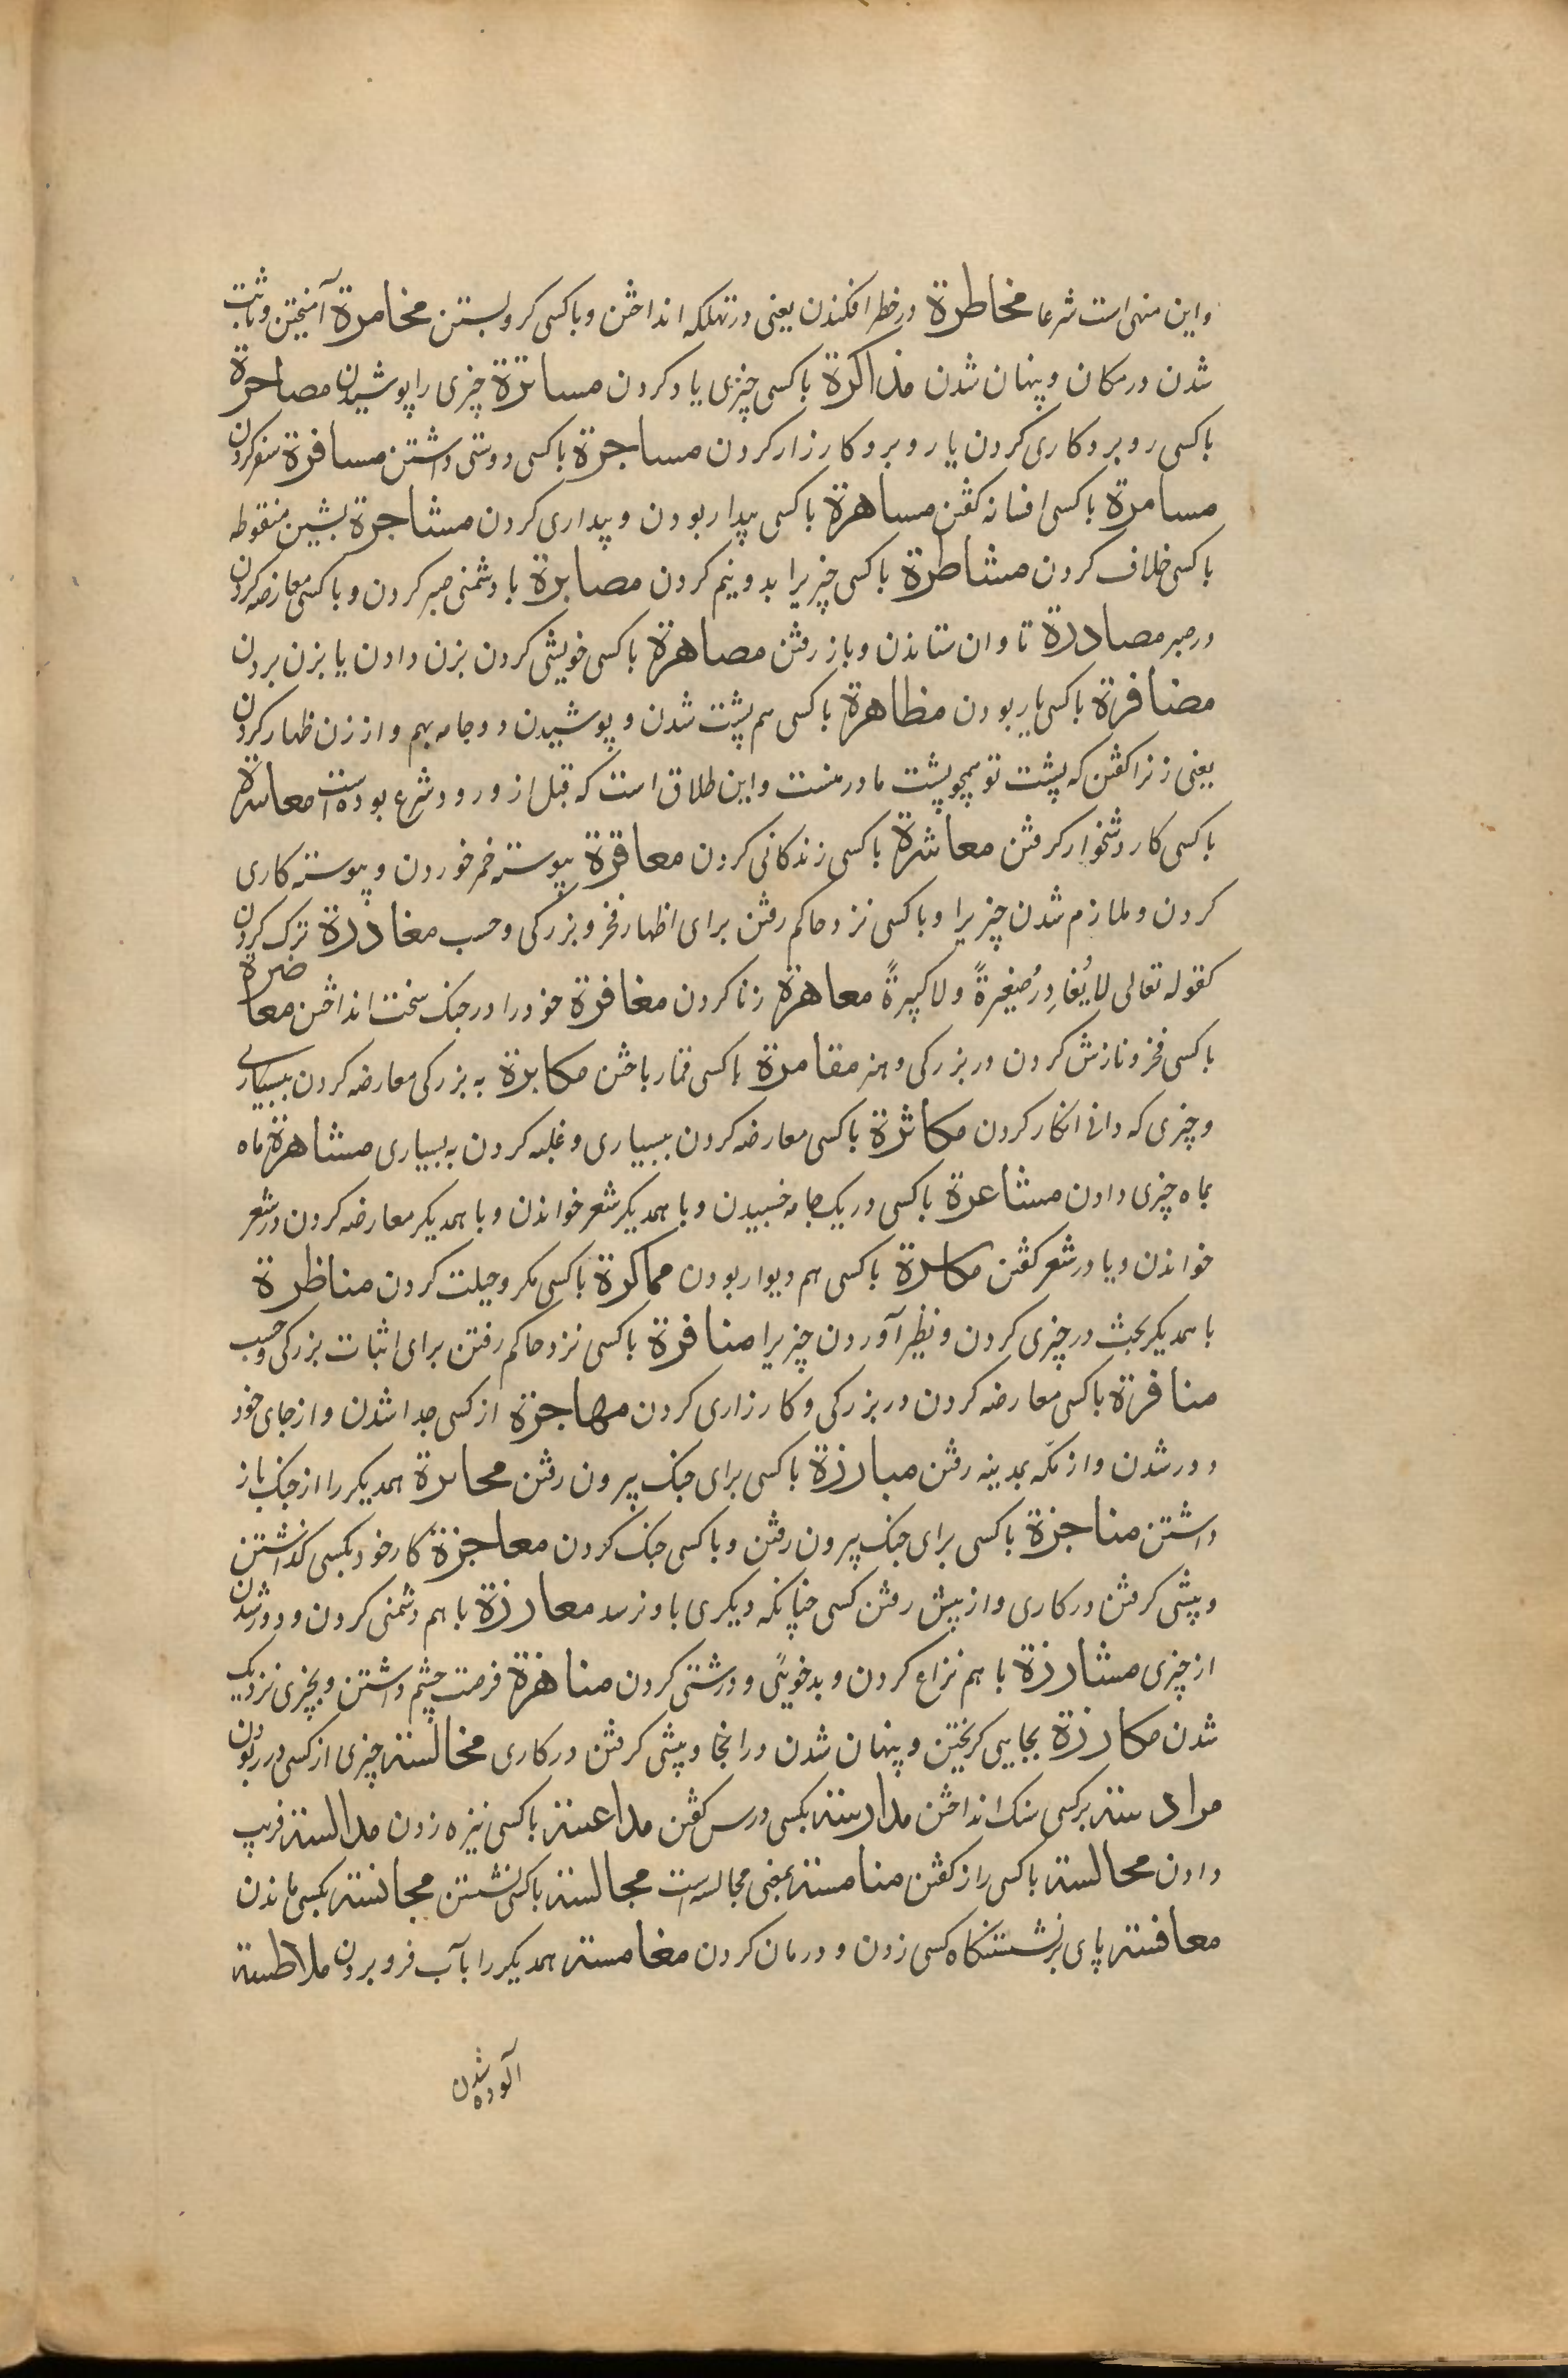 واین منهی است شرعا مخاطرة در خطر افکندن یعنی در تهلکه انداختن و باکسی کرو بستن مخامرة آمیختن و ثابت
شدن در مکان و پنهان شدن مذاکرة باکسی چیزی یاد کردن مساترة چیزی را پوشیدن مصاحرة
باکسی روبرو کاری کردن یا روبرو کارزار کردن مساجرة باکسی دوستی داشتن مسافرة سفر کردن
مسامرة باکسی افسانه کفتن مساهرة باکسی بیدار بودن و بیداری کردن مشاجرة بشین منقوطه
باکسی خلاف کردن مشاطرة باکسی چیزیرا بدو نیم کردن مصابرة با دشمنی صبر کردن و باکسی معارضه کردن
در صبر مصادرة تاوان ستاندن و باز رفتن مصاهرة باکسی خویشی کردن بزن دادن یا بزن بردن
مضافرة باکسی یار بودن مظاهرة باکسی هم پشت شدن و پوشیدن دو جامه بهم و از زن ظهار کردن
یعنی زنرا کفتن که پشت تو همچو پشت مادر منست و این طلاق است که قبل از ورود شرع بوده است معاسرة
باکسی کار دشخوار کرفتن معاشرة باکسی زندکانی کردن معاقرة پیوسته خمر خوردن و پیوسته کاری
کردن و ملازم شدن چیزیرا و باکسی نزد حاکم رفتن برای اظهار فخر و بزرکی و حسب مغادرة ترک کردن
کقوله تعالی لا یُغادِرُ صَغیرةً ولا کبیرةً معاهرة زنا کردن مغافرة خود را در جنک سخت انداختن معاضرة
باکسی فخر و نازش کردن در بزرکی و هنر مقامرة باکسی قمار باختن مکابرة به بزرکی معارضه کردن ببسیاری
و چیزی که دانی انکار کردن مکاثرة باکسی معارضه کردن ببسیاری و غلبه کردن به بسیاری مشاهرة ماه
بماه چیزی دادن مشاعرة باکسی در یک جامه خسبیدن و با همدیکر شعر خواندن و با همدیکر معارضه کردن در شعر
خواندن و یا در شعر کفتن مکاسرة باکسی هم دیوار بودن مماکرة باکسی مکر و حیلت کردن مناظرة
با همدیکر بحث در چیزی کردن و نظیر آوردن چیزیرا منافرة باکسی نزد حاکم رفتن برای اثبات بزرکی و حسب
منافرة باکسی معارضه کردن در بزرکی و کارزاری کردن مهاجرة از کسی جدا شدن و از جای خود
دور شدن و از مکّه بمدینه رفتن مبارزة باکسی برای جنک بیرون رفتن محابرة همدیکر را از جنک باز
داشتن مناجزة باکسی برای جنک بیرون رفتن و باکسی جنک کردن معاجزة کار خود بکسی کذاشتن
و پیشی کرفتن در کاری و از پیش رفتن کسی چنانکه دیکری باو نرسد معارزة با هم دشمنی کردن و دور شدن
از چیزی مشارزة با هم نزاع کردن و بدخویئی و درشتی کردن مناهزة فرصت چشم داشتن و بچیزی نزدیک
شدن مکارزة بجایی کریختن و پنهان شدن در انجا و پیشی کرفتن در کاری مخالسة چیزی از کسی در ربودن
مرادسة بر کسی سنک انداختن مدارسة بکسی درس کفتن مداعسة باکسی نیزه زدن مدالسة فریب
دادن محالسة باکسی راز کفتن منامسة بمعنی محالسه است مجالسة باکسی نشستن مجانسة بکسی ماندن
معافسة پای بر نشستنکاه کسی زدن و درمان کردن مغامسة همدیکر را بآب فرو بردن ملاطسة
آلوده شدن